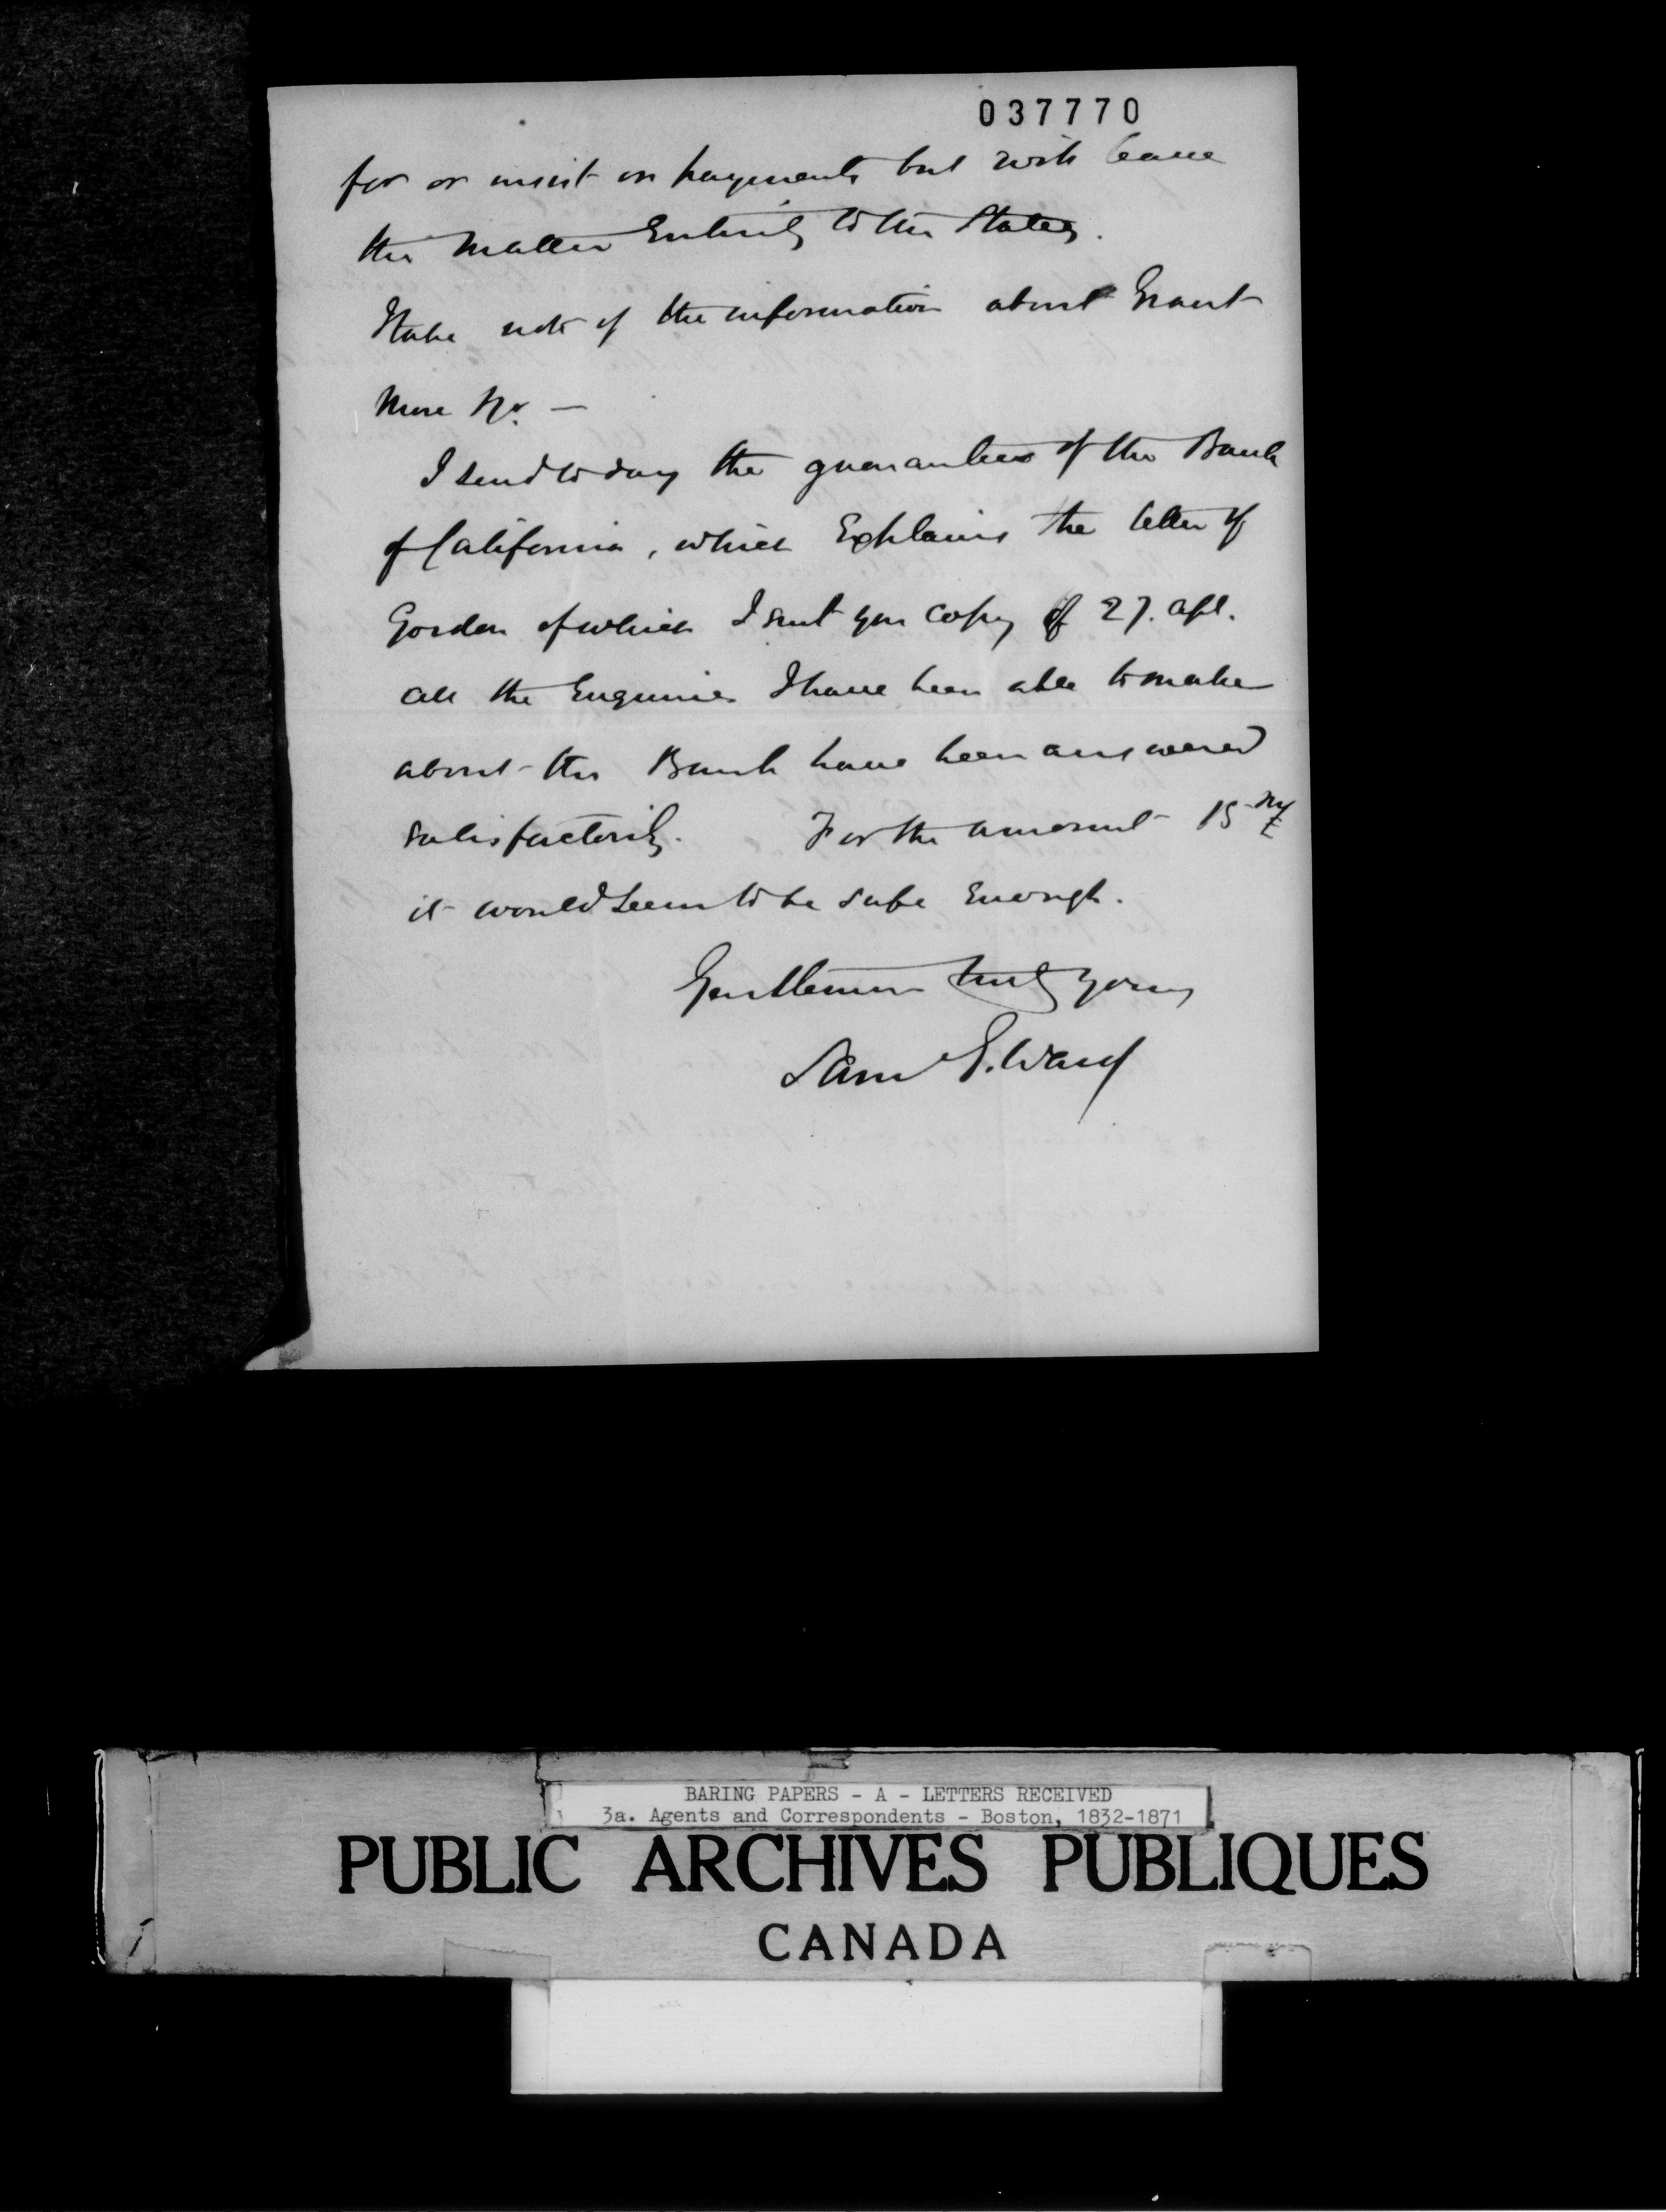 037770
for or insist on payments but will leave
the matter Entirely to the States.
I take note of the information about Grant
More &c. —
I send to day the guarantee of the Bank
of California, which Explains the letter of
Gordon of which I sent you copy of 27. Apl.
all the Enquiries I have been able to make
about the Bank have been answered
satisfactorily. For the amount 15
it would seem to be safe Enough.
Gentlemen truly yours
Sam G. Ward
BARING PAPERS - A - LETTERS RECEIVED
3a. Agents and Correspondents - Boston, 1832-1871
PUBLIC ARCHIVES PUBLIQUES
CANADA